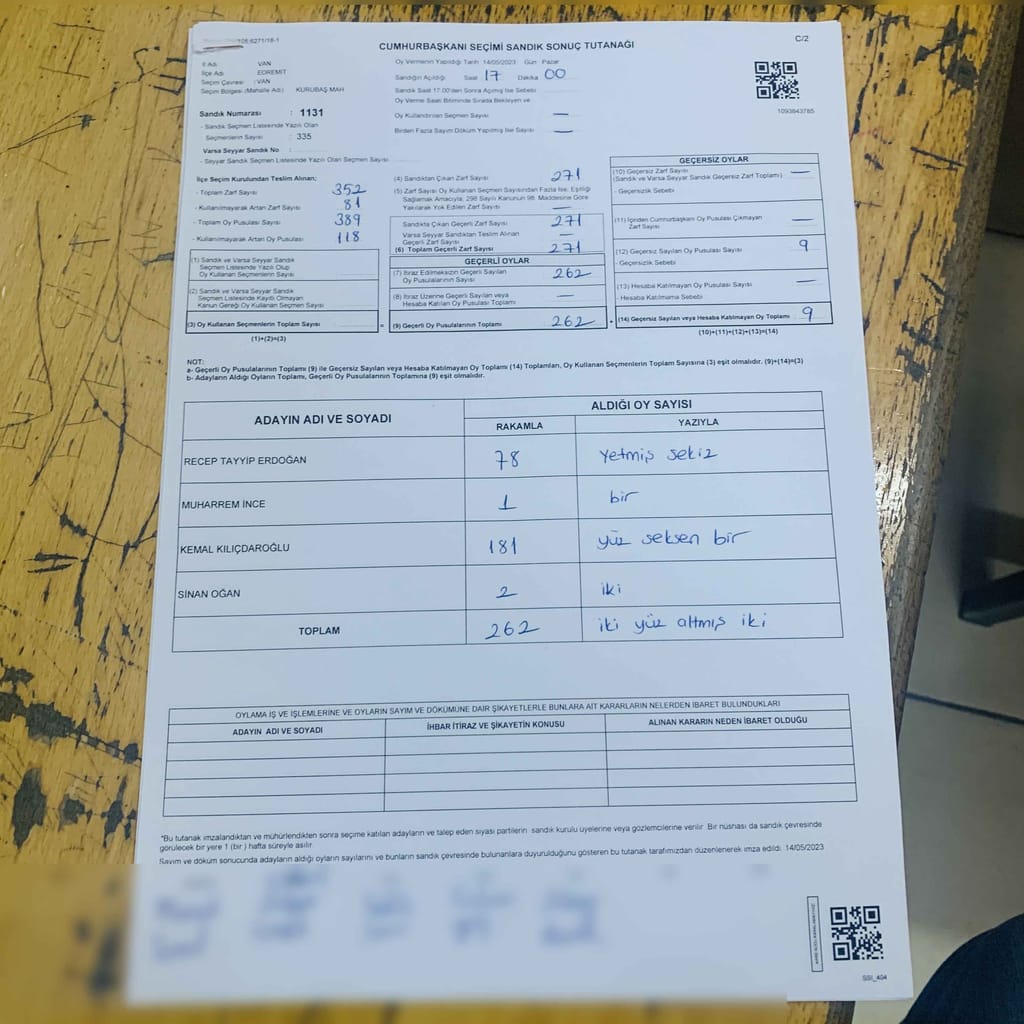 CUMHURBAŞKANI SEÇİMİ SANDIK SONUÇ TUTANAĞI
C/2
İl Adı : VAN
İlçe Adı : EDREMİT
Seçim Çevresi : VAN
Seçim Bölgesi (Mahalle Adı) : KURUBAŞ MAH
Sandık Numarası : 1131
- Sandık Seçmen Listesinde Yazılı Olan
Seçmenlerin Sayısı : 335
Varsa Seyyar Sandık No :
- Seyyar Sandık Seçmen Listesinde Yazılı Olan Seçmen Sayısı
Oy Vermenin Yapıldığı Tarih 14/05/2023 Gün Pazar
Sandığın Açıldığı Saat 17 Dakika 00
Sandık Saat 17.00'den Sonra Açılmış İse Sebebi
Oy Verme Saati Bitiminde Sırada Bekleyen ve
Oy Kullandırılan Seçmen Sayısı —
Birden Fazla Sayım Döküm Yapılmış İse Sayısı —
1093843785
İlçe Seçim Kurulundan Teslim Alınan;
- Toplam Zarf Sayısı 352
- Kullanılmayarak Artan Zarf Sayısı 81
- Toplam Oy Pusulası Sayısı 389
- Kullanılmayarak Artan Oy Pusulası 118
(1) Sandık ve Varsa Seyyar Sandık
Seçmen Listesinde Yazılı Olup
Oy Kullanan Seçmenlerin Sayısı
(2) Sandık ve Varsa Seyyar Sandık
Seçmen Listesinde Kayıtlı Olmayan
Kanun Gereği Oy Kullanan Seçmen Sayısı
(3) Oy Kullanan Seçmenlerin Toplam Sayısı
(1)+(2)=(3)
(4) Sandıktan Çıkan Zarf Sayısı 271
(5) Zarf Sayısı Oy Kullanan Seçmen Sayısından Fazla İse, Eşitliği
Sağlamak Amacıyla; 298 Sayılı Kanunun 98. Maddesine Göre
Yakılarak Yok Edilen Zarf Sayısı —
Sandıkta Çıkan Geçerli Zarf Sayısı 271
Varsa Seyyar Sandıktan Teslim Alınan
Geçerli Zarf Sayısı —
(6) Toplam Geçerli Zarf Sayısı 271
GEÇERLİ OYLAR
(7) İtiraz Edilmeksizin Geçerli Sayılan
Oy Pusulalarının Sayısı 262
(8) İtiraz Üzerine Geçerli Sayılan veya
Hesaba Katılan Oy Pusulası Toplamı —
= (9) Geçerli Oy Pusulalarının Toplamı 262 +
GEÇERSİZ OYLAR
(10) Geçersiz Zarf Sayısı
(Sandık ve Varsa Seyyar Sandık Geçersiz Zarf Toplamı) —
- Geçersizlik Sebebi
(11) İçinden Cumhurbaşkanı Oy Pusulası Çıkmayan
Zarf Sayısı —
(12) Geçersiz Sayılan Oy Pusulası Sayısı 9
- Geçersizlik Sebebi
(13) Hesaba Katılmayan Oy Pusulası Sayısı —
- Hesaba Katılmama Sebebi
(14) Geçersiz Sayılan veya Hesaba Katılmayan Oy Toplamı 9
(10)+(11)+(12)+(13)=(14)
NOT:
a- Geçerli Oy Pusulalarının Toplamı (9) ile Geçersiz Sayılan veya Hesaba Katılmayan Oy Toplamı (14) Toplamları, Oy Kullanan Seçmenlerin Toplam Sayısına (3) eşit olmalıdır. (9)+(14)=(3)
b- Adayların Aldığı Oyların Toplamı, Geçerli Oy Pusulalarının Toplamına (9) eşit olmalıdır.
ADAYIN ADI VE SOYADI
ALDIĞI OY SAYISI
RAKAMLA YAZIYLA
RECEP TAYYİP ERDOĞAN 78 Yetmiş sekiz
MUHARREM İNCE 1 bir
KEMAL KILIÇDAROĞLU 181 yüz seksen bir
SİNAN OĞAN 2 iki
TOPLAM 262 iki yüz altmış iki
OYLAMA İŞ VE İŞLEMLERİNE VE OYLARIN SAYIM VE DÖKÜMÜNE DAİR ŞİKAYETLERLE BUNLARA AİT KARARLARIN NELERDEN İBARET BULUNDUKLARI
ADAYIN ADI VE SOYADI İHBAR İTİRAZ VE ŞİKAYETİN KONUSU ALINAN KARARIN NEDEN İBARET OLDUĞU
*Bu tutanak imzalandıktan ve mühürlendikten sonra seçime katılan adayların ve talep eden siyasi partilerin sandık kurulu üyelerine veya gözlemcilerine verilir. Bir nüshası da sandık çevresinde
görülecek bir yere 1 (bir) hafta süreyle asılır.
Sayım ve döküm sonucunda adayların aldığı oyların sayılarını ve bunların sandık çevresinde bulunanlara duyurulduğunu gösteren bu tutanak tarafımızdan düzenlenerek imza edildi. 14/05/2023
SSI_404